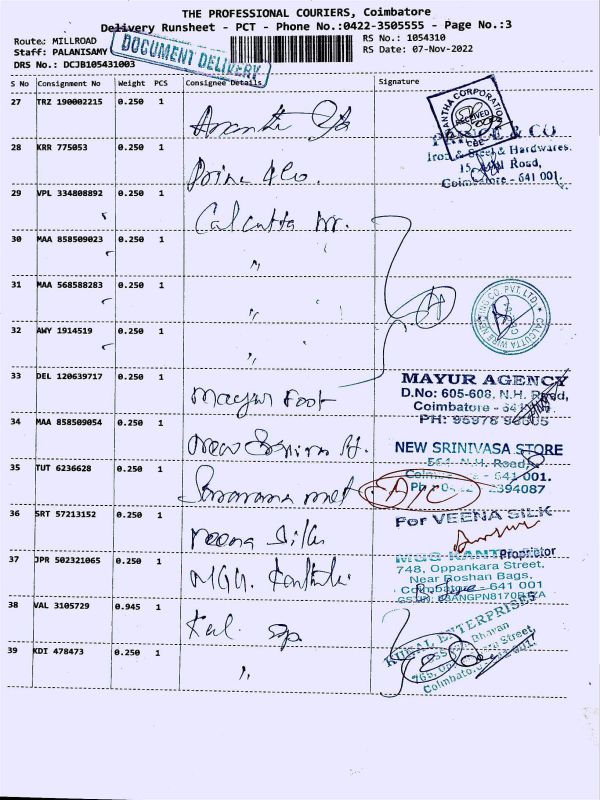 THE PROFESSIONAL COURIERS, Coimbatore
Delivery Runsheet - PCT - Phone No.:0422-3505555 - Page No.:3
Route: MILLROAD
RS No.: 1054310
Staff: PALANISAMY
RS Date: 07-Nov-2022
DRS No.: DCJB105431003
DOCUMENT DELIVERY
S No Consignment No Weight PCS Consignee Details Signature
27 TRZ 190002215 0.250 1
RECEIVED
PRINCE & CO
Iron & Steel & Hardwares.
Road,
Coimbatore - 641 001.
28 KRR 775053 0.250 1
29 VPL 334808892 0.250 1 Calcutta
30 MAA 858509023 0.250 1 "
31 MAA 568588283 0.250 1 "
CALCUTTA WIRE NETTING CO. PVT LTD
32 AWY 1914519 0.250 1 "
33 DEL 120639717 0.250 1 Mayur Foot
MAYUR AGENCY
D.No: 605-608, N.H. Road,
Coimbatore - 641
PH: 95978
34 MAA 858509054 0.250 1 New
NEW SRINIVASA STORE
N.H. Road,
Coimbatore - 641 001.
2394087
35 TUT 6236628 0.250 1
36 SRT 57213152 0.250 1 Veena Silks
For VEENA SILK
Proprietor
37 JPR 502321065 0.250 1
748, Oppankara Street,
Near Roshan Bags,
Coimbatore - 641 001
38 VAL 3105729 0.945 1
ENTERPRISES
Bhavan
Street,
39 KDI 478473 0.250 1 "